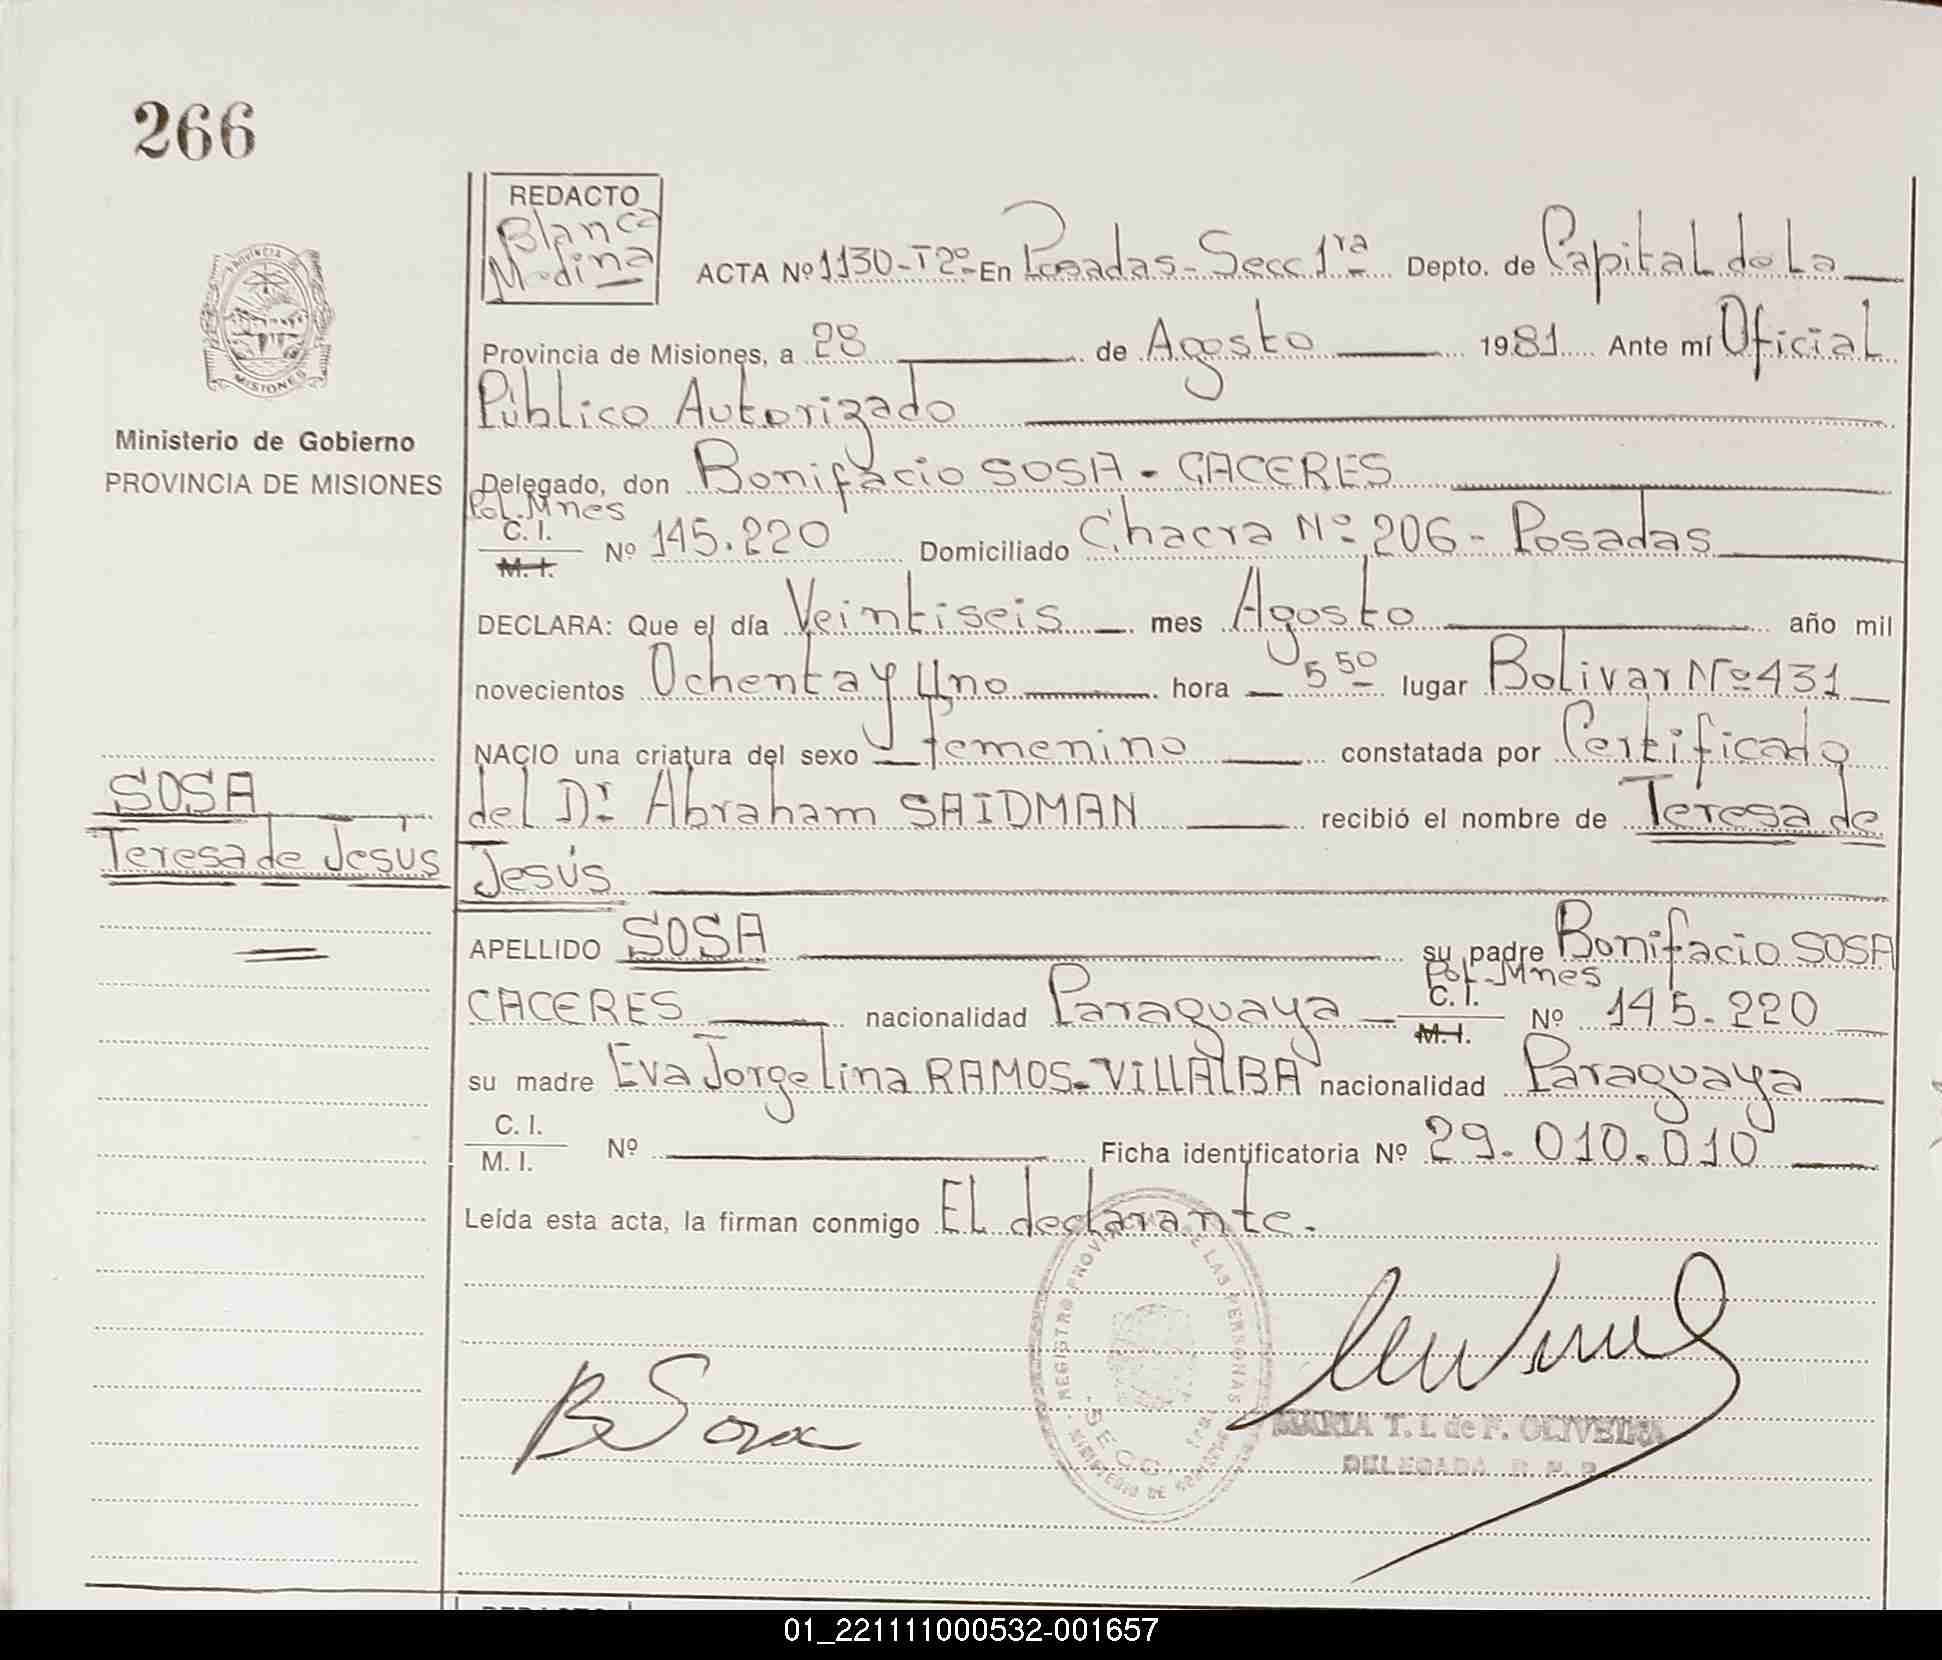 266
REDACTO
Blanca
Medina
ACTA Nº 1130-Tº2º- En Posadas- Secc 1ra Depto. de Capital de La
Provincia de Misiones, a 28 de Agosto 1981 Ante mí Oficial
Público Autorizado
PROVINCIA DE
MISIONES
Ministerio de Gobierno
PROVINCIA DE MISIONES
Delegado, don Bonifacio SOSA - CACERES
Pol. Mnes
C. I.
M. I.
Nº 145.220 Domiciliado Chacra Nº 206- Posadas
DECLARA: Que el día Veintiseis mes Agosto año mil
novecientos Ochenta y Uno hora 5 50 lugar Bolivar Nº 431
NACIO una criatura del sexo femenino constatada por Certificado
del Dr. Abraham SAIDMAN recibió el nombre de Teresa de
Jesús
SOSA
Teresa de Jesús
APELLIDO SOSA su padre Bonifacio SOSA
CACERES nacionalidad Paraguaya Pol. Mnes
C. I.
M. I.
Nº 145.220
su madre Eva Jorgelina RAMOS-VILLALBA nacionalidad Paraguaya
C. I.
M. I.
Nº Ficha identificatoria Nº 29.010.010
Leída esta acta, la firman conmigo El declarante.
B Sosa
REGISTRO PROVINCIAL DE LAS PERSONAS
SECC. 1ra
MINISTERIO DE GOBIERNO
MARIA T. I. de F. OLIVEIRA
DELEGADA R. P. P.
01_221111000532-001657